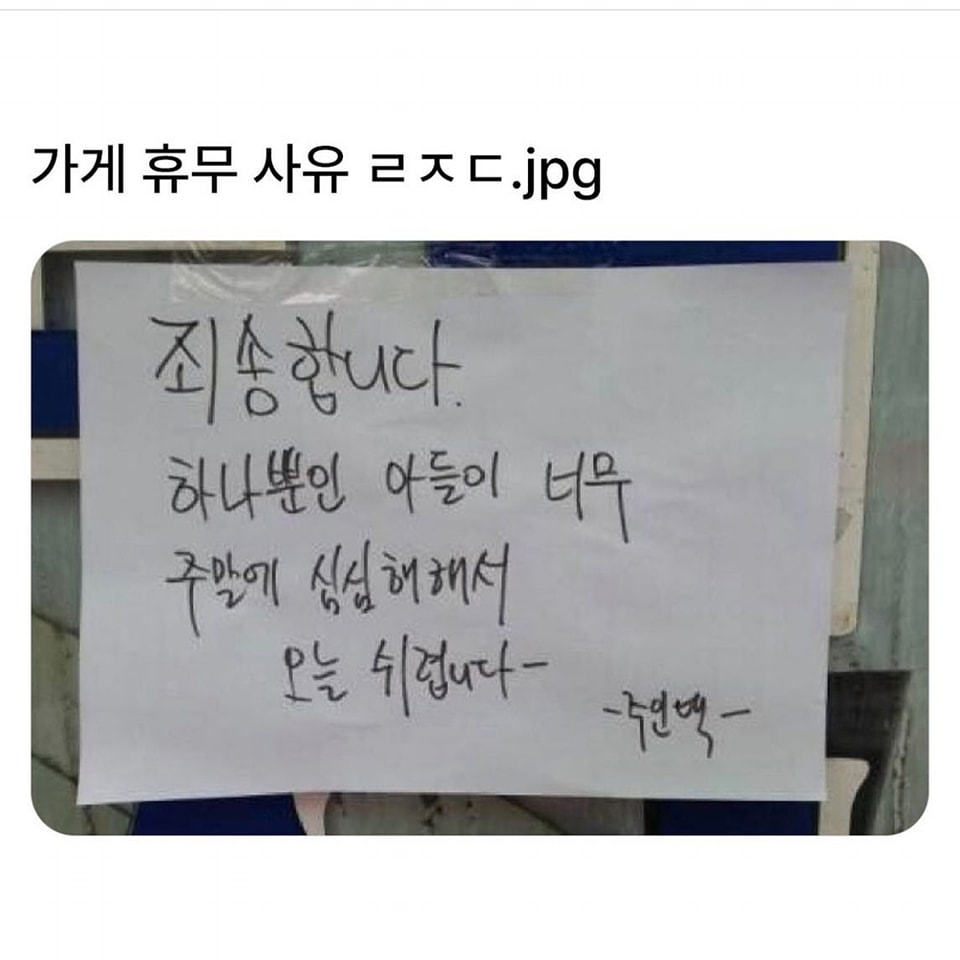 가게 휴무 사유 ㄹㅈㄷ.jpg
죄송합니다.
하나뿐인 아들이 너무
주말에 심심해해서
오늘 쉬렵니다-
-주인백-